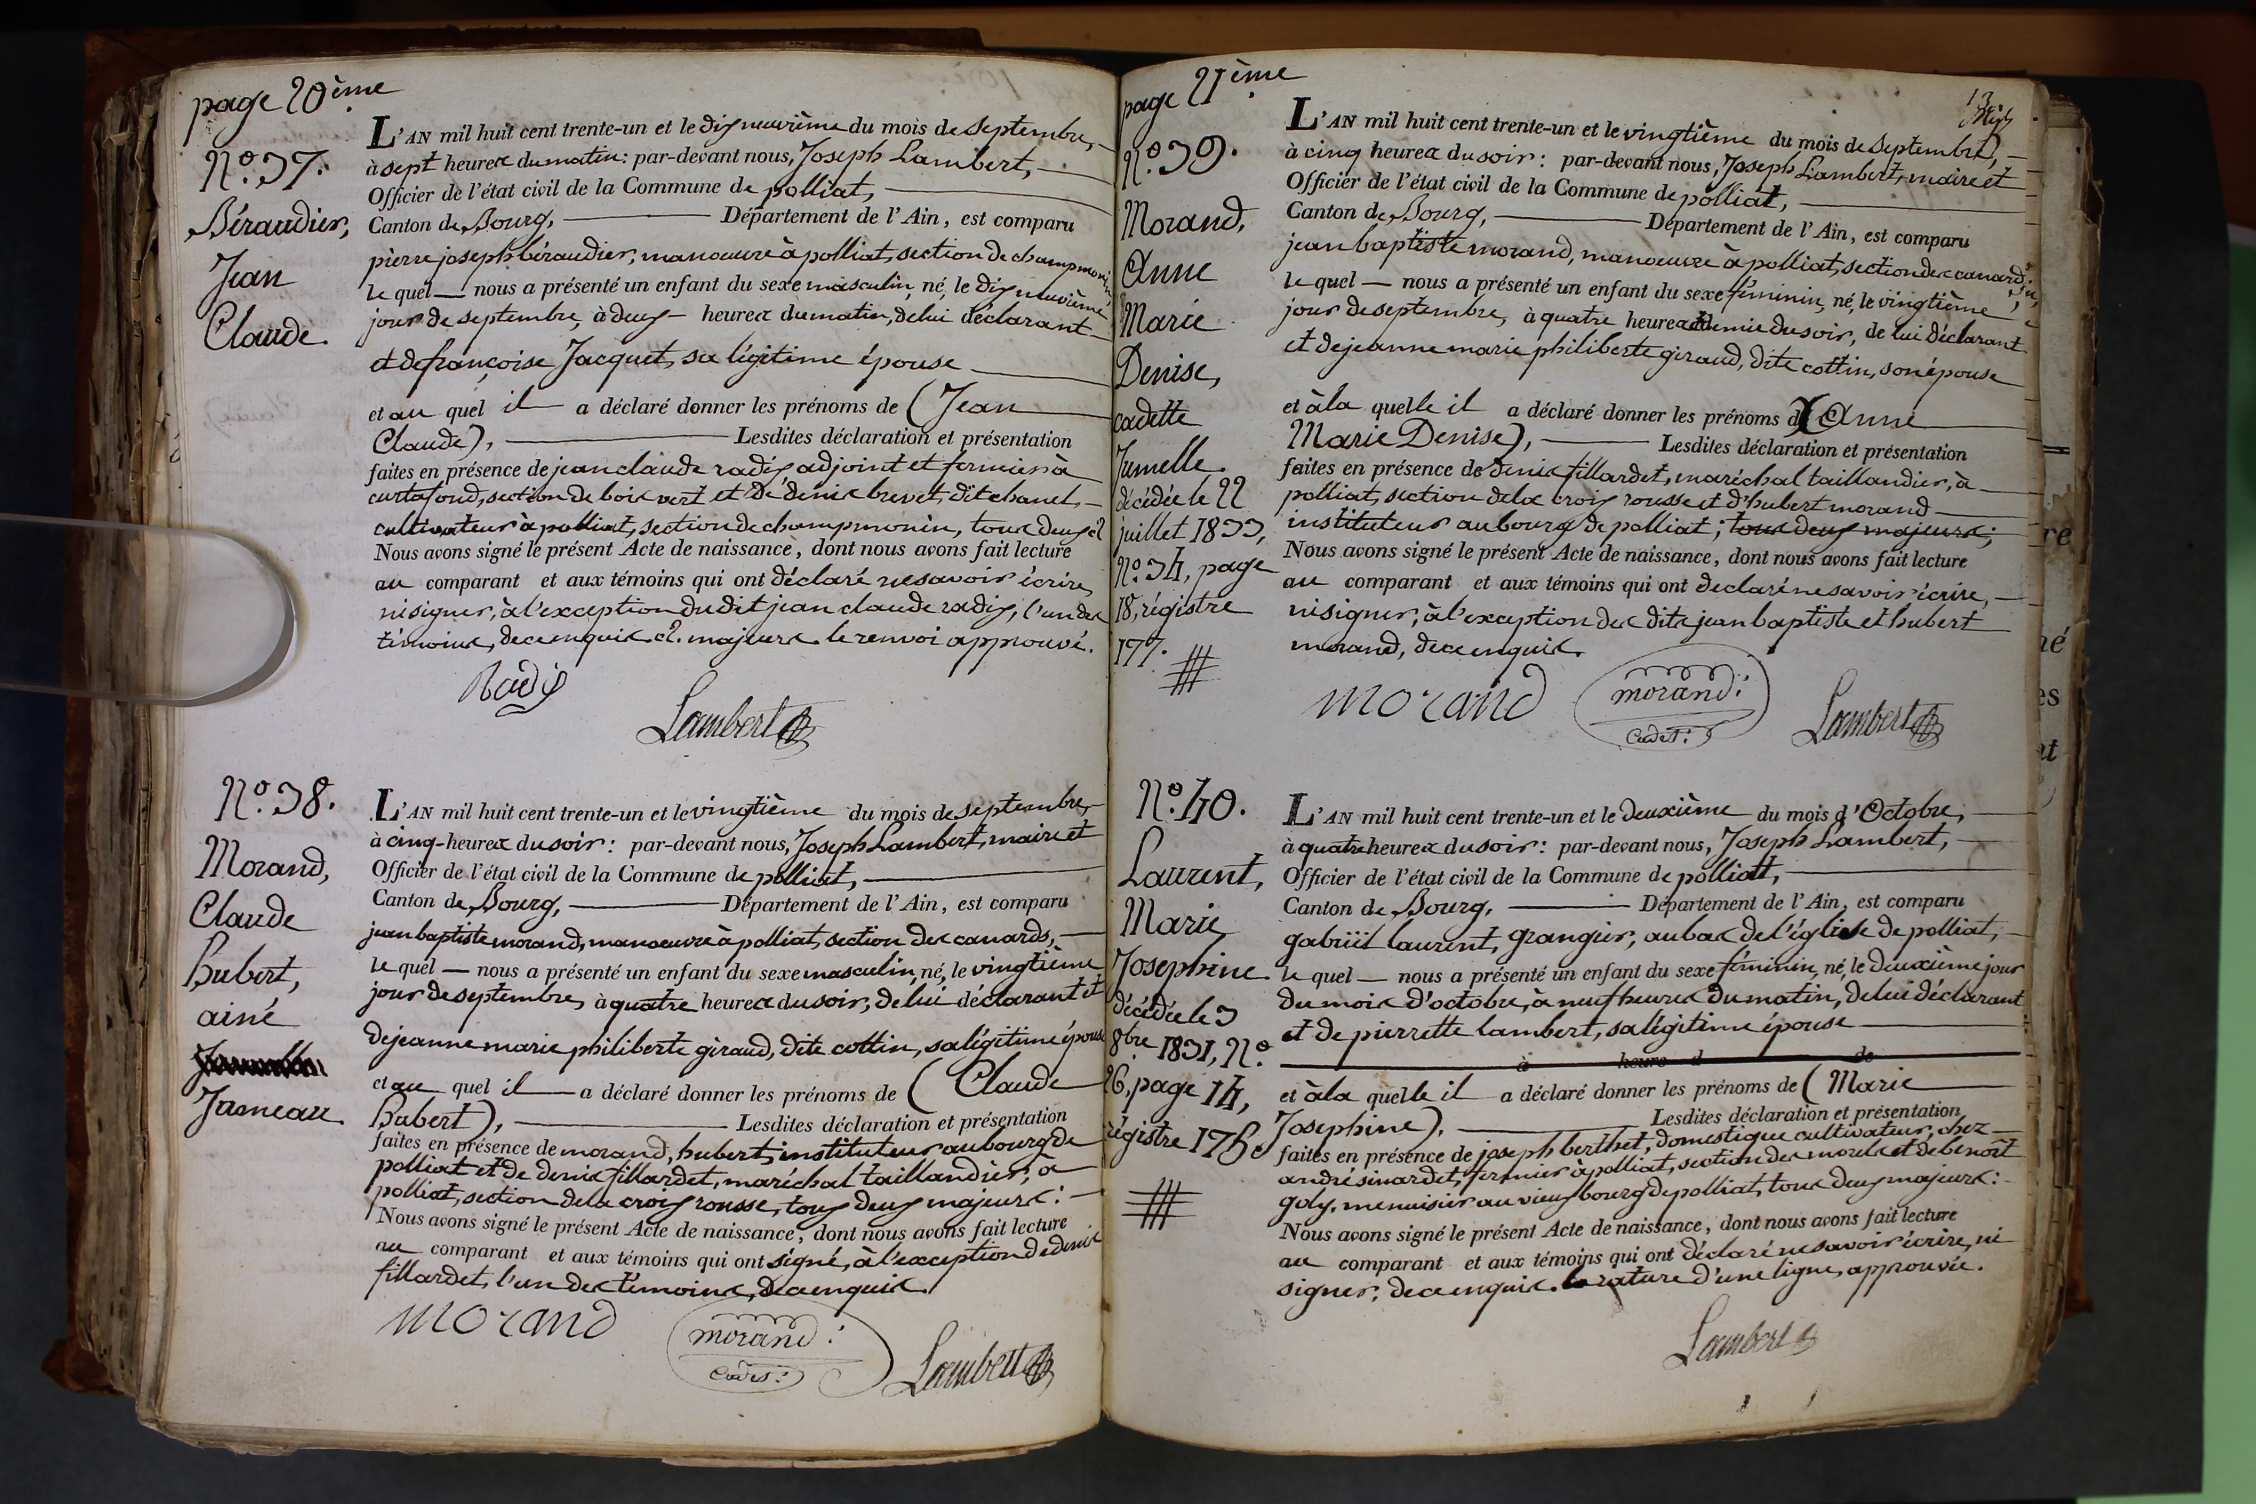 page 20ème
N.° 37.
Béraudier,
Jean
Claude.
L'AN mil huit cent trente-un et le dix neuvième du mois de septembre,
à sept heures du matin : par-devant nous, Joseph Lambert,
Officier de l'état civil de la Commune de polliat,
Canton de Bourg, Département de l'Ain, est comparu
pierre joseph béraudier, manoeuvre à polliat, section de champmonin,
le quel nous a présenté un enfant du sexe masculin, né, le dix neuvième
jour de septembre, à deux heures du matin, de lui déclarant
et de françoise Jacquet, sa légitime épouse
et au quel il a déclaré donner les prénoms de (Jean
Claude), Lesdites déclaration et présentation
faites en présence de jean claude radix adjoint et fermier à
curtafond, section de bois vert et de denis brevet, dit chanel,
cultivateur à polliat, section de champmonin, tous deux cl
Nous avons signé le présent Acte de naissance, dont nous avons fait lecture
au comparant et aux témoins qui ont déclaré ne savoir écrire,
ni signer, à l'exception du dit jean claude radix, l'un des
témoins, de ce enquis. cl. majeurs. le renvoi approuvé.
Radix
Lambert
N.° 38.
Morand,
Claude
Hubert,
ainé
Jumeau.
L'AN mil huit cent trente-un et le vingtième du mois de septembre,
à cinq heures du soir : par-devant nous, Joseph Lambert, maire et
Officier de l'état civil de la Commune de polliat,
Canton de Bourg, Département de l'Ain, est comparu
jean baptiste morand, manoeuvre à polliat, section des canards,
le quel nous a présenté un enfant du sexe masculin, né, le vingtième
jour de septembre, à quatre heures du soir, de lui déclarant et
de jeanne marie philiberte giraud, dite cottin, sa légitime épouse
et au quel il a déclaré donner les prénoms de (Claude
Hubert), Lesdites déclaration et présentation
faites en présence de morand, hubert, instituteur au bourg de
polliat et de denis fillardet, maréchal taillandier, à
polliat, section de la croix rousse, tous deux majeurs :
Nous avons signé le présent Acte de naissance, dont nous avons fait lecture
au comparant et aux témoins qui ont signé, à l'exception de denis
fillardet, l'un des témoins, de ce enquis.
morand
morand :
Cadet :
Lambert
page 21ème
N.° 39.
Morand,
Anne
Marie
Denise,
cadette
Jumelle.
décédée le 22
juillet 1833,
N.° 34, page
18, régistre
177.
L'AN mil huit cent trente-un et le vingtième du mois de septembre,
à cinq heures du soir : par-devant nous, Joseph Lambert, maire et
Officier de l'état civil de la Commune de polliat,
Canton de Bourg, Département de l'Ain, est comparu
jean baptiste morand, manoeuvre à polliat, section des canards,
le quel nous a présenté un enfant du sexe féminin, né, le vingtième
jour de septembre, à quatre heures et demie du soir, de lui déclarant
et de jeanne marie philiberte giraud, dite cottin, son épouse
et à la quelle il a déclaré donner les prénoms d (Anne
Marie Denise), Lesdites déclaration et présentation
faites en présence de denis fillardet, maréchal taillandier, à
polliat, section de la croix rousse et d'hubert morand
instituteur au bourg de polliat ; tous deux majeurs ;
Nous avons signé le présent Acte de naissance, dont nous avons fait lecture
au comparant et aux témoins qui ont déclaré ne savoir écrire,
ni signer, à l'exception des dits jean baptiste et hubert
morand, de ce enquis.
morand
morand :
Cadet :
Lambert
N.° 40.
Laurent,
Marie
Josephine.
décédée le 3
8bre 1831, N.°
26, page 14,
régistre 175.
L'AN mil huit cent trente-un et le deuxième du mois d'Octobre,
à quatre heures du soir : par-devant nous, Joseph Lambert,
Officier de l'état civil de la Commune de polliat,
Canton de Bourg, Département de l'Ain, est comparu
gabriel laurent, granger, au bas de l'église de polliat,
le quel nous a présenté un enfant du sexe féminin, né, le deuxième jour
du mois d'octobre, à neuf heures du matin, de lui déclarant
et de pierrette lambert, sa légitime épouse
à heure d de
et à la quelle il a déclaré donner les prénoms de (Marie
Josephine). Lesdites déclaration et présentation
faites en présence de joseph berthet, domestique cultivateur, chez
andré sinardet, fermier à polliat, section des morels et de benoît
goly, menuisier au vieux bourg de polliat, tous deux majeurs :
Nous avons signé le présent Acte de naissance, dont nous avons fait lecture
au comparant et aux témoins qui ont déclaré ne savoir écrire, ni
signer, de ce enquis. la rature d'une ligne, approuvée.
Lambert